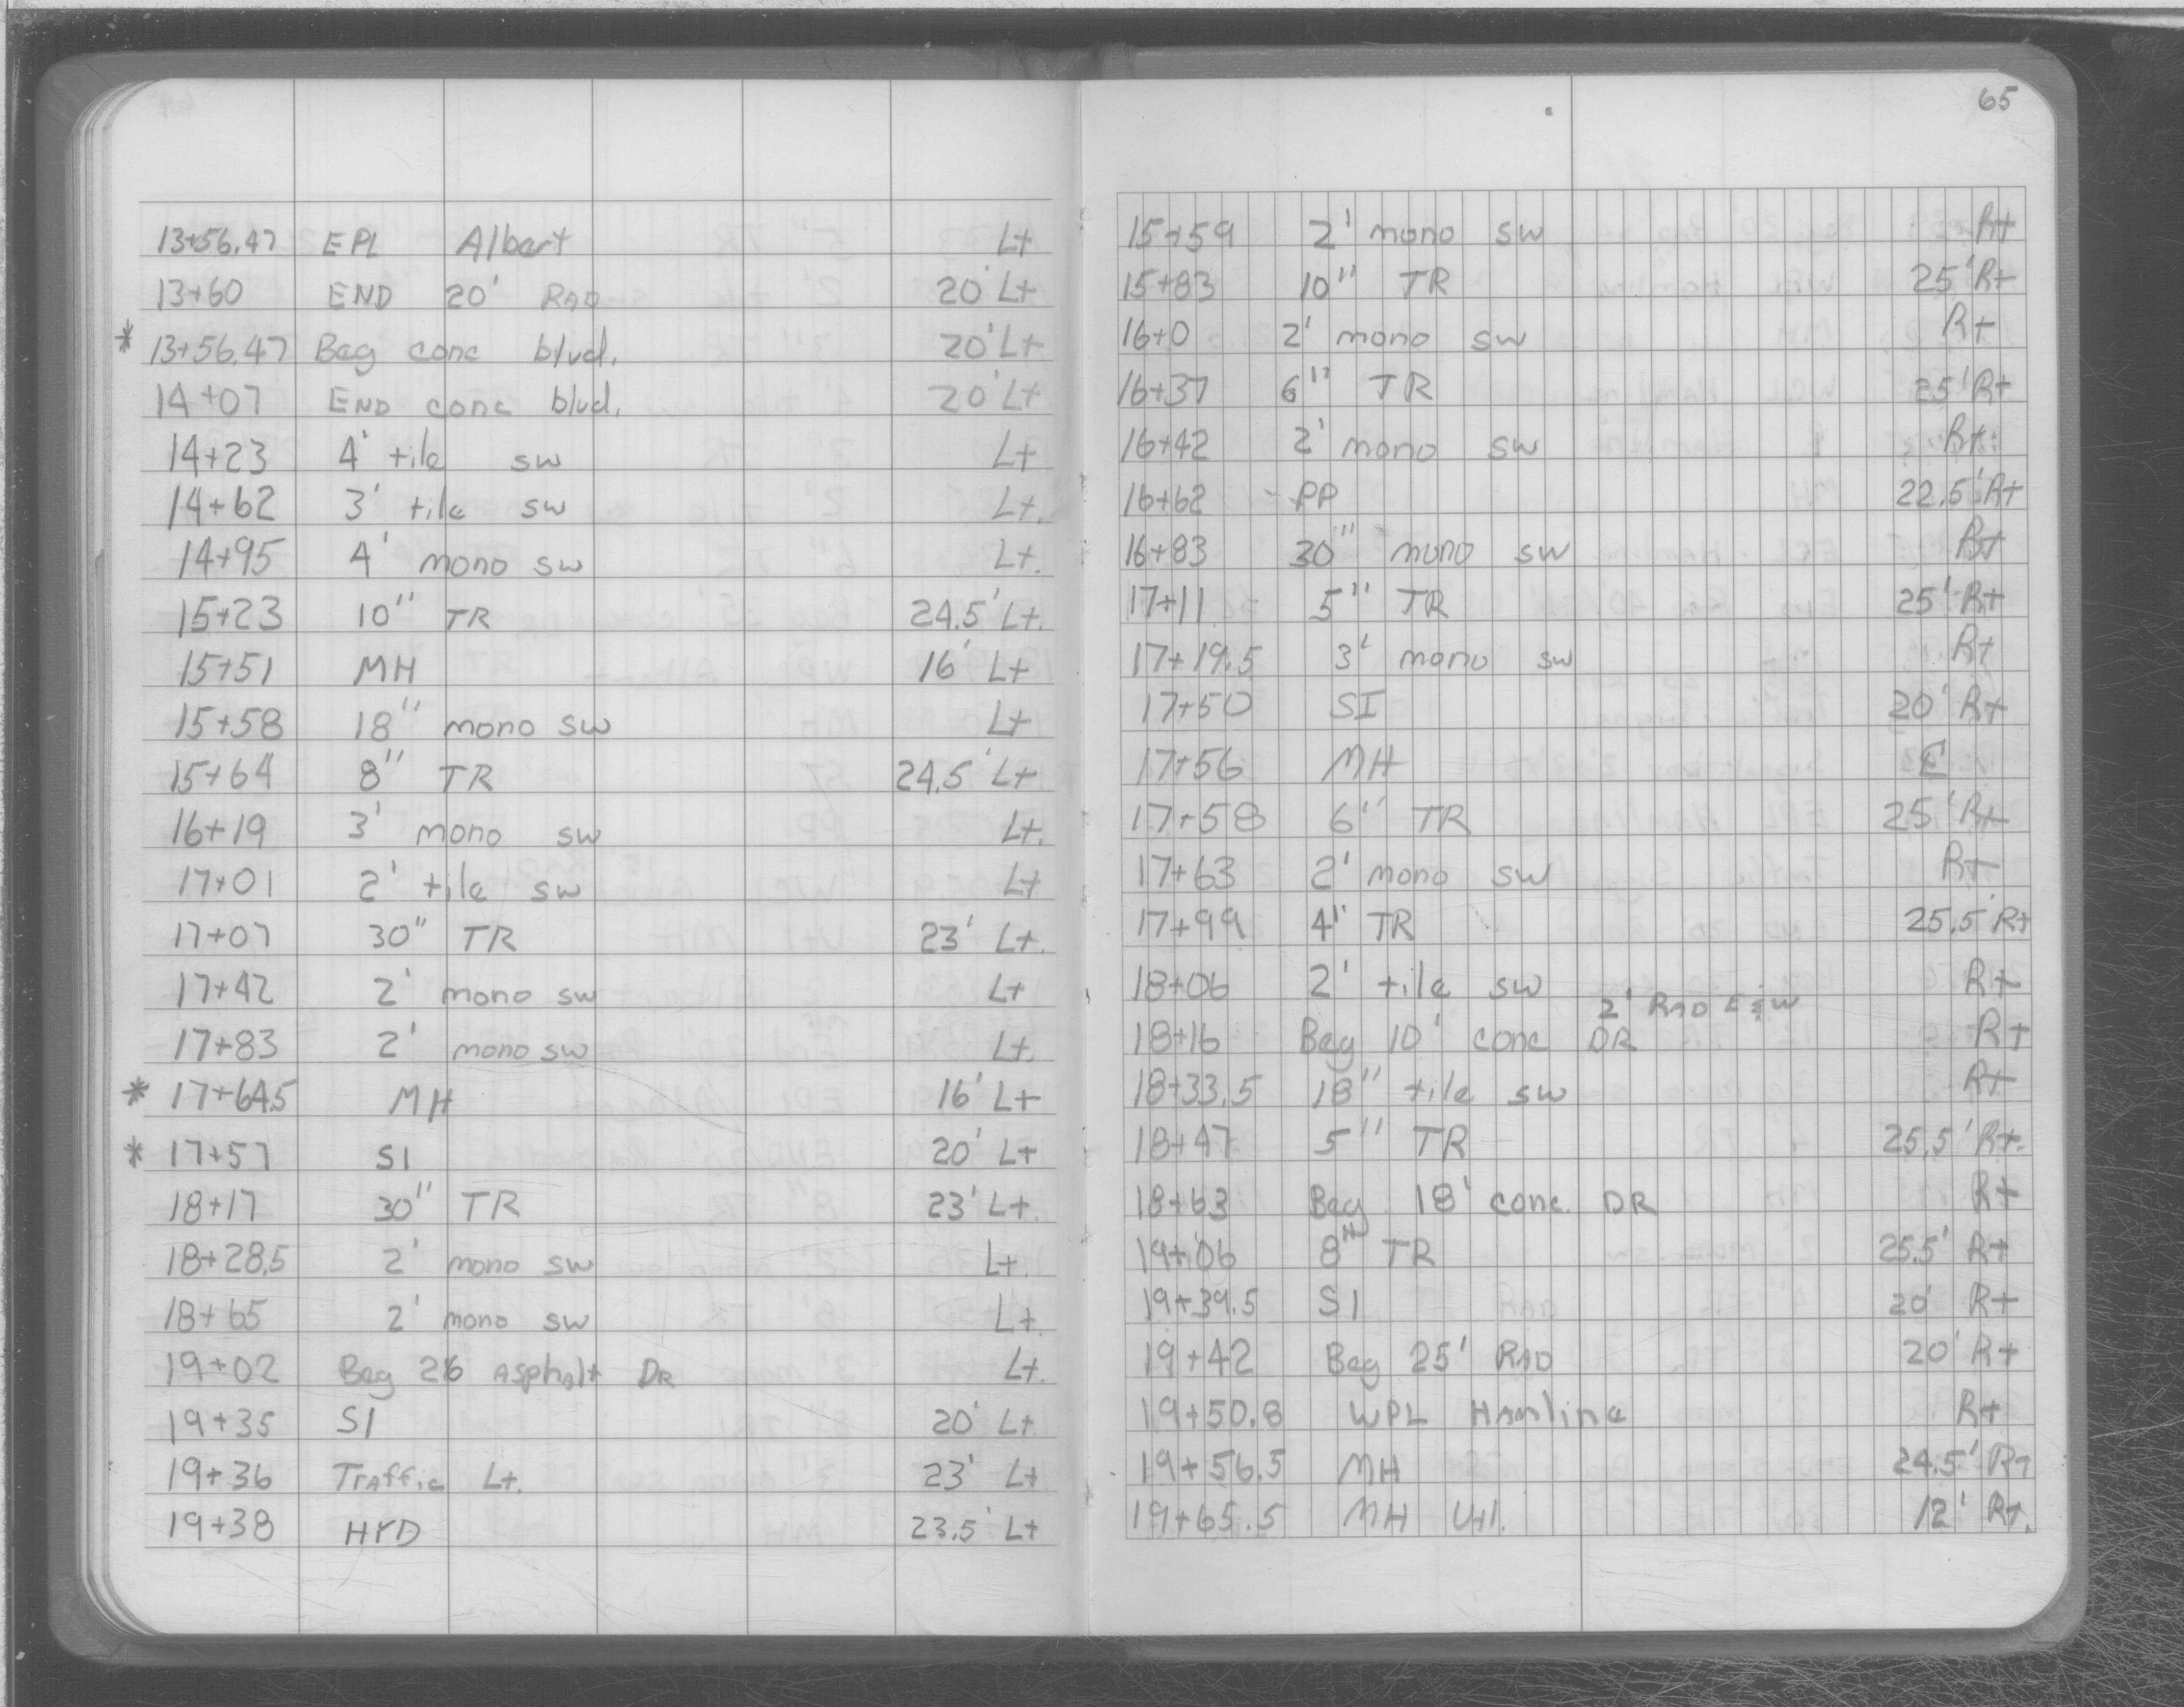 13+56.47 EPL Albert Lt
13+60 END 20' RAD 20' Lt
* 13+56.47 Beg conc blvd. 20' Lt
14+07 END conc blvd. 20' Lt
14+23 4' tile sw Lt
14+62 3' tile sw Lt.
14+95 4' mono sw Lt.
15+23 10" TR 24.5' Lt.
15+51 MH 16' Lt
15+58 18" mono sw Lt
15+64 8" TR 24.5' Lt
16+19 3' mono sw Lt.
17+01 2' tile sw Lt
17+07 30" TR 23' Lt.
17+42 2' mono sw Lt
17+83 2' mono sw Lt.
* 17+64.5 MH 16' Lt
* 17+57 SI 20' Lt
18+17 30" TR 23' Lt.
18+28.5 2' mono sw Lt.
18+65 2' mono sw Lt.
19+02 Beg 26 Asphalt DR Lt.
19+35 SI 20' Lt.
19+36 Traffic Lt. 23' Lt
19+38 HYD 23.5' Lt
65
15+59 2' mono sw Rt
15+83 10" TR 25' Rt
16+0 2' mono sw Rt
16+37 6" TR 25' Rt
16+42 2' mono sw Rt.
16+62 PP 22.5' Rt
16+83 30" mono sw Rt
17+11 5" TR 25' Rt
17+19.5 3' mono sw Rt
17+50 SI 20' Rt
17+56 MH
17+58 6" TR 25' Rt
17+63 2' mono sw Rt
17+99 4" TR 25.5' Rt
18+06 2' tile sw Rt
2' RAD E & W
18+16 Beg 10' conc DR Rt
18+33.5 18" tile sw Rt
18+47 5" TR 25.5' Rt.
18+63 Beg 18' conc. DR Rt
19+06 8" TR 25.5' Rt
19+39.5 SI 20' Rt
19+42 Beg 25' RAD 20' Rt
19+50.8 WPL Hamline Rt
19+56.5 MH 24.5' Rt
19+65.5 MH Utl. 12' Rt.